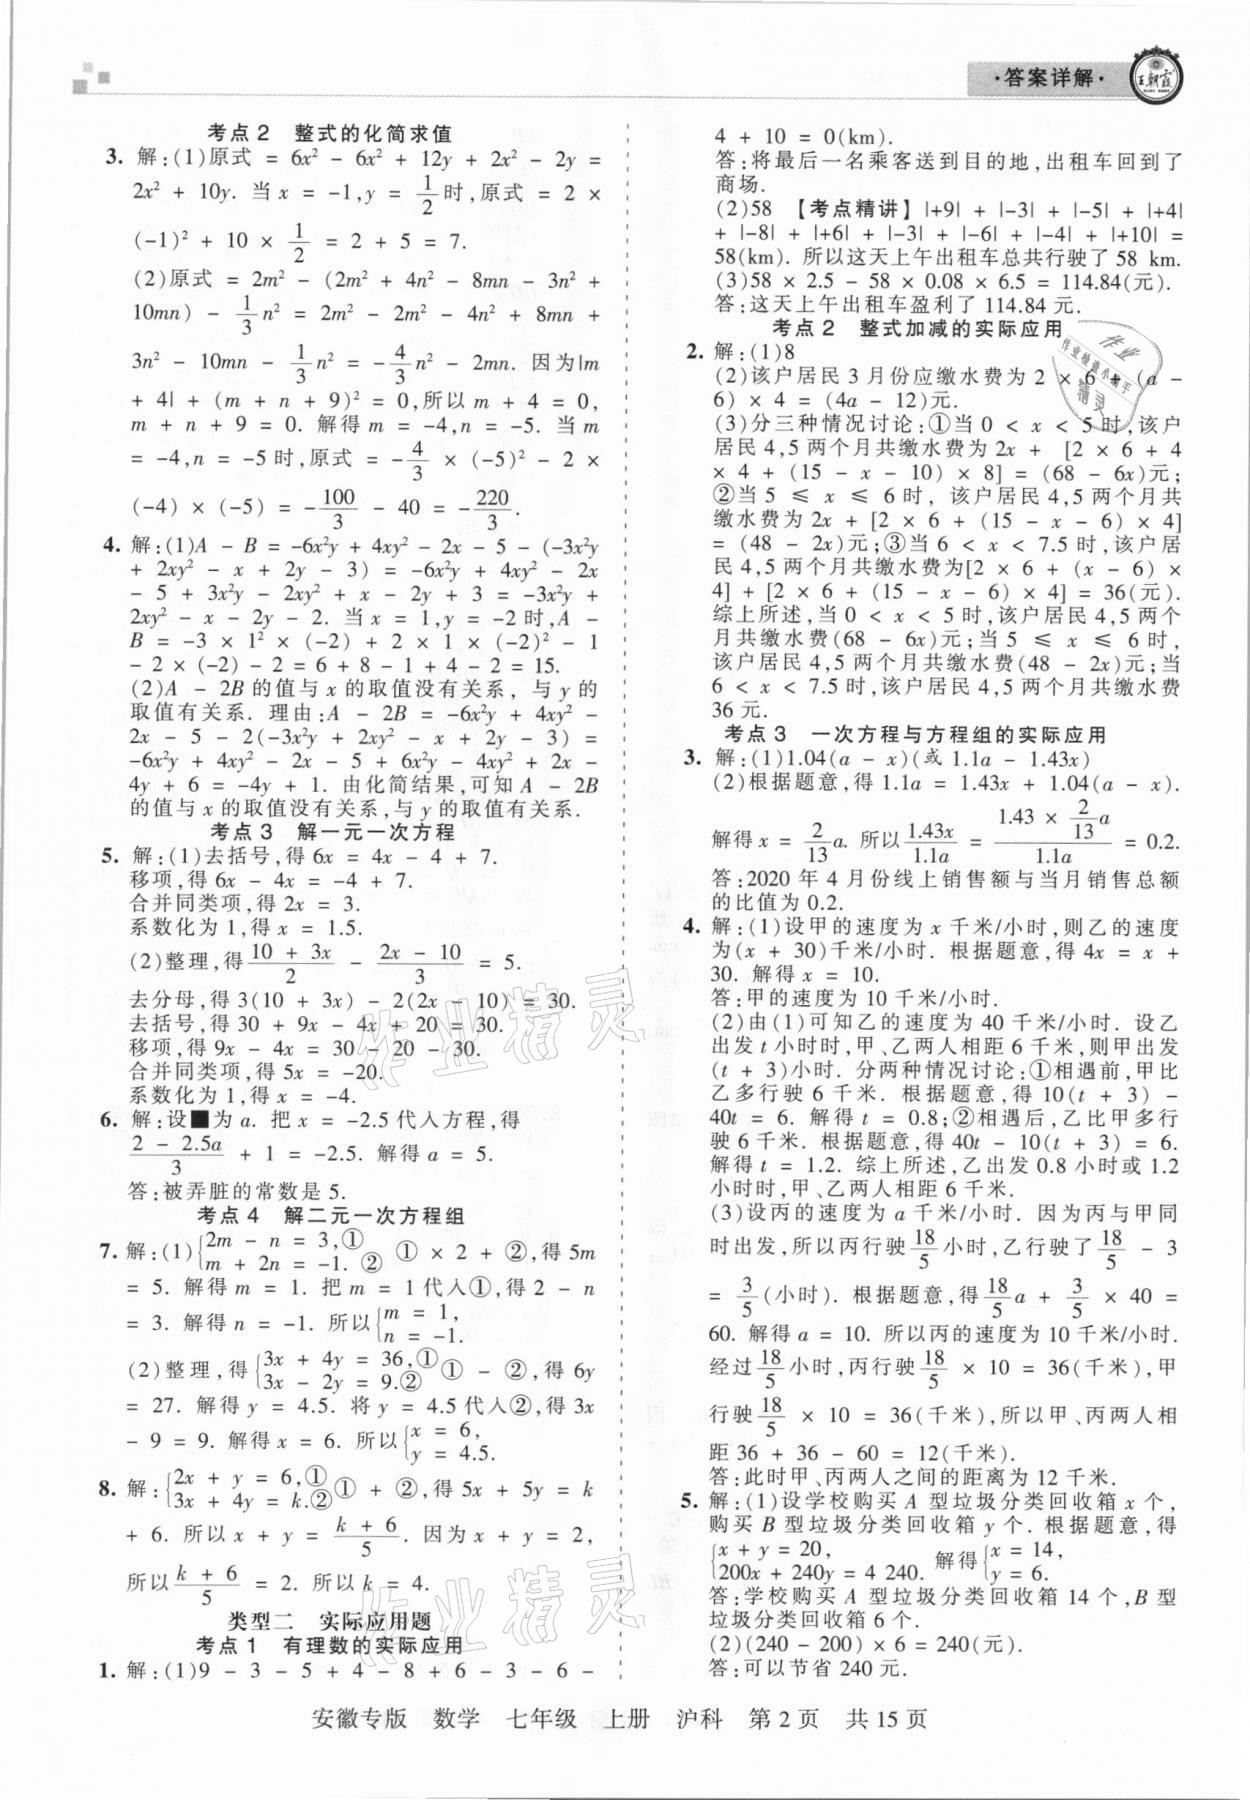 ·答案详解·
王朝霞
考点2 整式的化简求值
3. 解:(1)原式 = 6x² - 6x² + 12y + 2x² - 2y =
2x² + 10y. 当 x = -1,y = 1/2 时,原式 = 2 ×
(-1)² + 10 × 1/2 = 2 + 5 = 7.
(2)原式 = 2m² - (2m² + 4n² - 8mn - 3n² +
10mn) - 1/3 n² = 2m² - 2m² - 4n² + 8mn +
3n² - 10mn - 1/3 n² = -4/3 n² - 2mn. 因为|m
+ 4| + (m + n + 9)² = 0,所以 m + 4 = 0,
m + n + 9 = 0. 解得 m = -4,n = -5. 当 m
= -4,n = -5时,原式 = -4/3 × (-5)² - 2 ×
(-4) × (-5) = -100/3 - 40 = -220/3.
4. 解:(1)A - B = -6x²y + 4xy² - 2x - 5 - (-3x²y
+ 2xy² - x + 2y - 3) = -6x²y + 4xy² - 2x
- 5 + 3x²y - 2xy² + x - 2y + 3 = -3x²y +
2xy² - x - 2y - 2. 当 x = 1,y = -2时,A -
B = -3 × 1² × (-2) + 2 × 1 × (-2)² - 1
- 2 × (-2) - 2 = 6 + 8 - 1 + 4 - 2 = 15.
(2)A - 2B 的值与 x 的取值没有关系, 与 y 的
取值有关系. 理由:A - 2B = -6x²y + 4xy² -
2x - 5 - 2(-3x²y + 2xy² - x + 2y - 3) =
-6x²y + 4xy² - 2x - 5 + 6x²y - 4xy² + 2x -
4y + 6 = -4y + 1. 由化简结果,可知 A - 2B
的值与 x 的取值没有关系,与 y 的取值有关系.
考点3 解一元一次方程
5. 解:(1)去括号,得 6x = 4x - 4 + 7.
移项,得 6x - 4x = -4 + 7.
合并同类项,得 2x = 3.
系数化为 1,得 x = 1.5.
(2)整理,得 (10 + 3x)/2 - (2x - 10)/3 = 5.
去分母,得 3(10 + 3x) - 2(2x - 10) = 30.
去括号,得 30 + 9x - 4x + 20 = 30.
移项,得 9x - 4x = 30 - 20 - 30.
合并同类项,得 5x = -20.
系数化为 1,得 x = -4.
6. 解:设■为 a. 把 x = -2.5 代入方程,得
(2 - 2.5a)/3 + 1 = -2.5. 解得 a = 5.
答:被弄脏的常数是 5.
考点4 解二元一次方程组
7. 解:(1){2m - n = 3,① m + 2n = -1.② ① × 2 + ②,得 5m
= 5. 解得 m = 1. 把 m = 1 代入①,得 2 - n
= 3. 解得 n = -1. 所以{m = 1, n = -1.
(2)整理,得{3x + 4y = 36,① 3x - 2y = 9.② ① - ②,得 6y
= 27. 解得 y = 4.5. 将 y = 4.5 代入②,得 3x
- 9 = 9. 解得 x = 6. 所以{x = 6, y = 4.5.
8. 解:{2x + y = 6,① 3x + 4y = k.② ① + ②,得 5x + 5y = k
+ 6. 所以 x + y = (k + 6)/5. 因为 x + y = 2,
所以 (k + 6)/5 = 2. 所以 k = 4.
类型二 实际应用题
考点1 有理数的实际应用
1. 解:(1)9 - 3 - 5 + 4 - 8 + 6 - 3 - 6 -
4 + 10 = 0(km).
答:将最后一名乘客送到目的地,出租车回到了
商场.
(2)58 【考点精讲】|+9| + |-3| + |-5| + |+4|
+ |-8| + |+6| + |-3| + |-6| + |-4| + |+10| =
58(km). 所以这天上午出租车总共行驶了 58 km.
(3)58 × 2.5 - 58 × 0.08 × 6.5 = 114.84(元).
答:这天上午出租车盈利了 114.84 元.
考点2 整式加减的实际应用
2. 解:(1)8
(2)该户居民 3 月份应缴水费为 2 × 6 + (a -
6) × 4 = (4a - 12)元.
(3)分三种情况讨论:①当 0 < x < 5 时,该户
居民 4,5 两个月共缴水费为 2x + [2 × 6 + 4
× 4 + (15 - x - 10) × 8] = (68 - 6x)元;
②当 5 ≤ x ≤ 6 时, 该户居民 4,5 两个月共
缴水费为 2x + [2 × 6 + (15 - x - 6) × 4]
= (48 - 2x)元;③当 6 < x < 7.5 时,该户居
民 4,5 两个月共缴水费为[2 × 6 + (x - 6) ×
4] + [2 × 6 + (15 - x - 6) × 4] = 36(元).
综上所述,当 0 < x < 5 时,该户居民 4,5 两个
月共缴水费(68 - 6x)元;当 5 ≤ x ≤ 6 时,
该户居民 4,5 两个月共缴水费(48 - 2x)元;当
6 < x < 7.5 时,该户居民 4,5 两个月共缴水费
36 元.
考点3 一次方程与方程组的实际应用
3. 解:(1)1.04(a - x)(或 1.1a - 1.43x)
(2)根据题意,得 1.1a = 1.43x + 1.04(a - x).
解得 x = 2/13 a. 所以 1.43x/1.1a = (1.43 × 2/13 a)/1.1a = 0.2.
答:2020 年 4 月份线上销售额与当月销售总额
的比值为 0.2.
4. 解:(1)设甲的速度为 x 千米/小时,则乙的速度
为(x + 30)千米/小时. 根据题意,得 4x = x +
30. 解得 x = 10.
答:甲的速度为 10 千米/小时.
(2)由(1)可知乙的速度为 40 千米/小时. 设乙
出发 t 小时时,甲、乙两人相距 6 千米,则甲出发
(t + 3)小时. 分两种情况讨论:①相遇前,甲比
乙多行驶 6 千米. 根据题意,得 10(t + 3) -
40t = 6. 解得 t = 0.8;②相遇后,乙比甲多行
驶 6 千米. 根据题意,得 40t - 10(t + 3) = 6.
解得 t = 1.2. 综上所述,乙出发 0.8 小时或 1.2
小时时,甲、乙两人相距 6 千米.
(3)设丙的速度为 a 千米/小时. 因为丙与甲同
时出发,所以丙行驶 18/5 小时,乙行驶了 18/5 - 3
= 3/5 (小时). 根据题意,得 18/5 a + 3/5 × 40 =
60. 解得 a = 10. 所以丙的速度为 10 千米/小时.
经过 18/5 小时,丙行驶 18/5 × 10 = 36(千米),甲
行驶 18/5 × 10 = 36(千米),所以甲、丙两人相
距 36 + 36 - 60 = 12(千米).
答:此时甲、丙两人之间的距离为 12 千米.
5. 解:(1)设学校购买 A 型垃圾分类回收箱 x 个,
购买 B 型垃圾分类回收箱 y 个. 根据题意,得
{x + y = 20, 200x + 240y = 4 240. 解得{x = 14, y = 6.
答:学校购买 A 型垃圾分类回收箱 14 个,B 型
垃圾分类回收箱 6 个.
(2)(240 - 200) × 6 = 240(元).
答:可以节省 240 元.
作业
作业检查小帮手
精灵
作业精灵
作业精灵
安徽专版 数学 七年级 上册 沪科 第2页 共15页